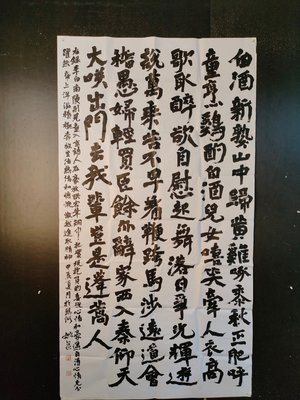 白酒新熟山中歸黃雞啄黍秋正肥呼
童烹鷄酌白酒兒女嬉笑牽人衣高
歌取醉欲自慰起舞落日爭光輝遊
說萬乘苦不早着鞭跨馬涉遠道會
稽愚婦輕買臣餘亦辭家西入秦仰天
大咲出門去我輩豈是蓬蒿人
右錄李白南陵別兒童入京詩